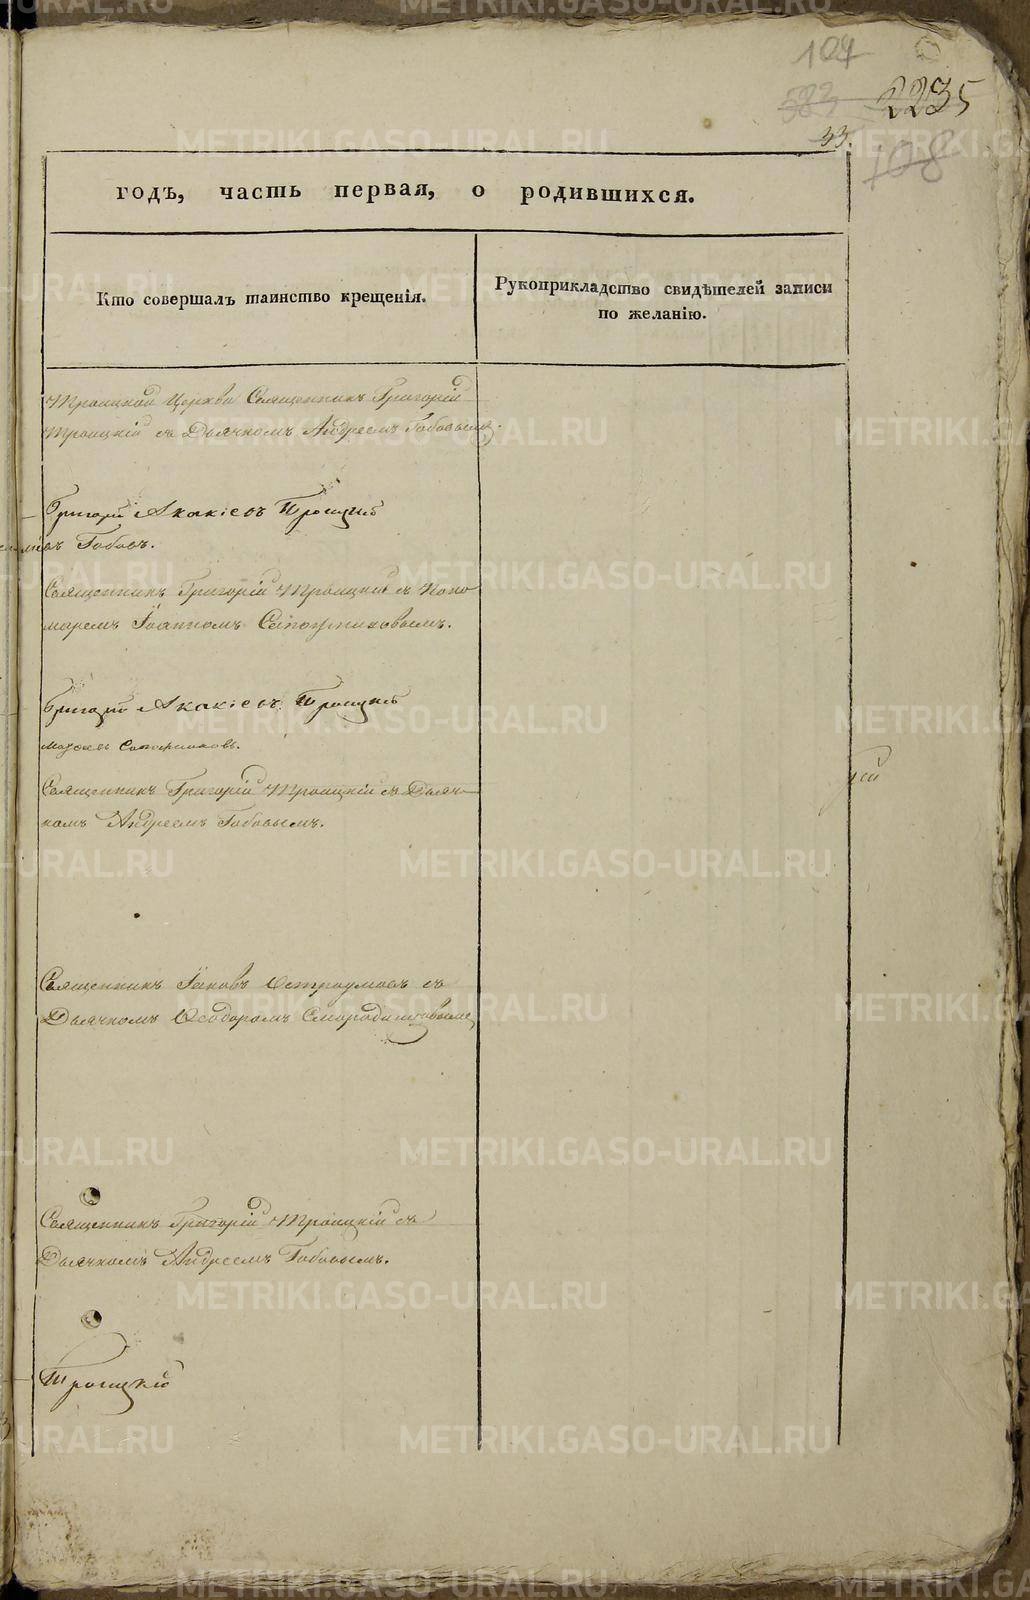 104
583 2235
33.
108
годъ, часть первая, о родившихся.
Кто совершалъ таинство крещенія.
Рукоприкладство свидѣтелей записи
по желанію.
Троицкой Церкви Священникъ Григорій
Троицкій съ Дьячкомъ Андреемъ Бобовымъ.
Григорій Акакіевъ Троицкій
Бобовъ.
Священникъ Григорій Троицкій съ Поно
маремъ Іоанномъ Сапожниковымъ.
Григорій Акакіевъ Троицкій
Сапожниковъ.
Священникъ Григорій Троицкій съ Дьяч-
комъ Андреемъ Бобовымъ.
Священникъ Іаковъ Остроумовъ съ
Дьячкомъ Ѳеодоромъ Смородинцовымъ
Священникъ Григорій Троицкій съ
Дьячкомъ Андреемъ Бобовымъ.
Троицкій
METRIKI.GASO-URAL.RU